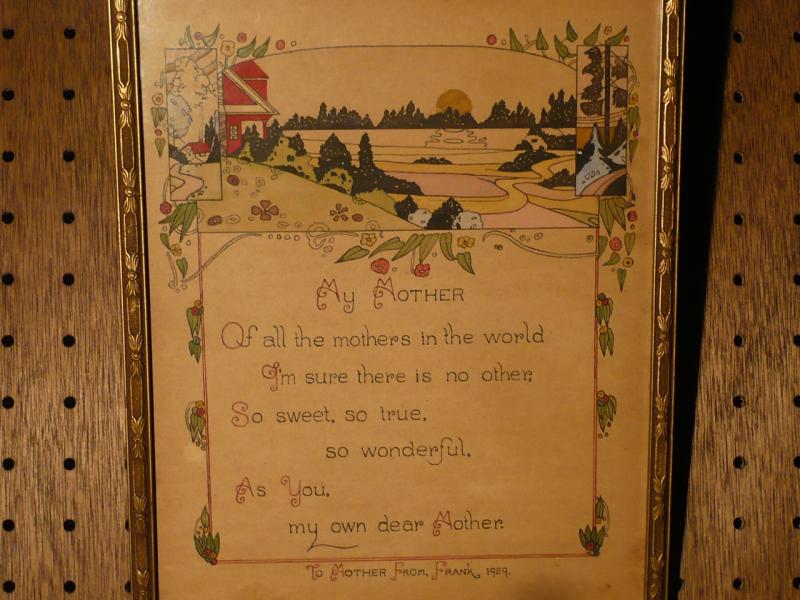 My Mother
Of all the mothers in the world
I'm sure there is no other,
So sweet, so true,
so wonderful,
As You,
my own dear Mother.
To Mother From, Frank, 1929.